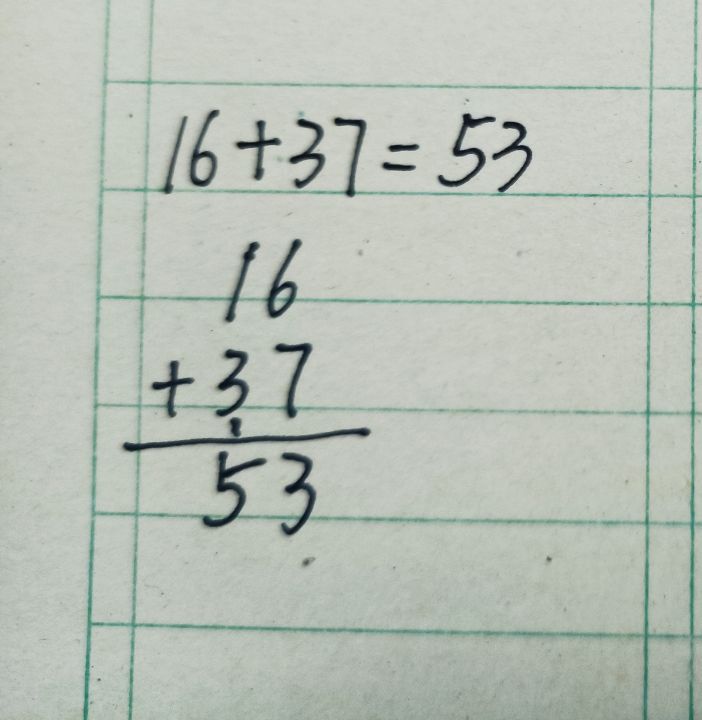 16+37=53
16
+37
53